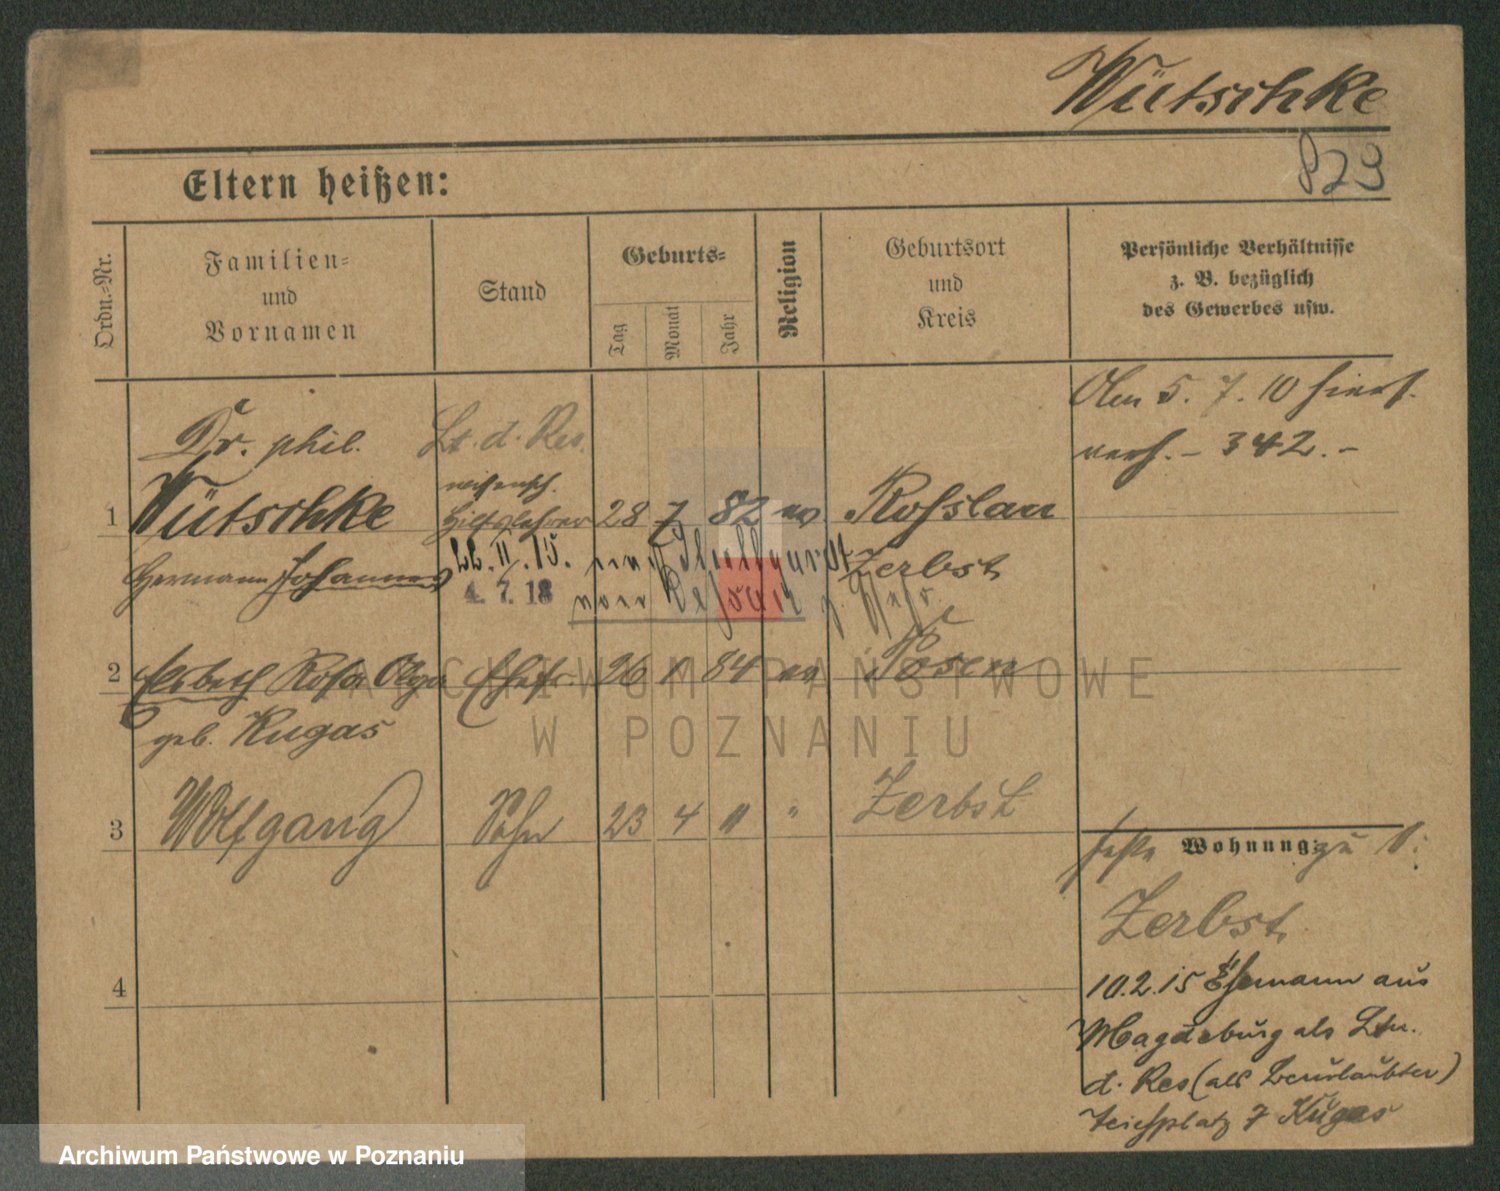 Wütschke
829
Eltern heißen:
Ordn.-Nr.
Familien-
und
Vornamen
Stand
Geburts-
Tag
Monat
Jahr
Religion
Geburtsort
und
Kreis
Persönliche Verhältnisse
z. B. bezüglich
des Gewerbes usw.
Am 5. 7. 10 hiers.
verh. – 342. –
Dr. phil. Lt. d. Res.
wissensch.
1 Wütschke Hilfslehrer 28 7 82 ev. Roßlau
Hermann Johannes 22. II. 15. Zerbst
4. 7. 18
2 Elsbeth Rosa Olga Ehefr. 26 1 84 ev Posen
geb. Kugas
3 Wolfgang Sohn 23 4 11 " Zerbst
Wohnung: zu 1:
Zerbst
4
10.2.15 Ehemann aus
Magdeburg als Ltn.
d. Res (als Beurlaubter)
7 Kugas
ARCHIWUM PAŃSTWOWE
W POZNANIU
Archiwum Państwowe w Poznaniu